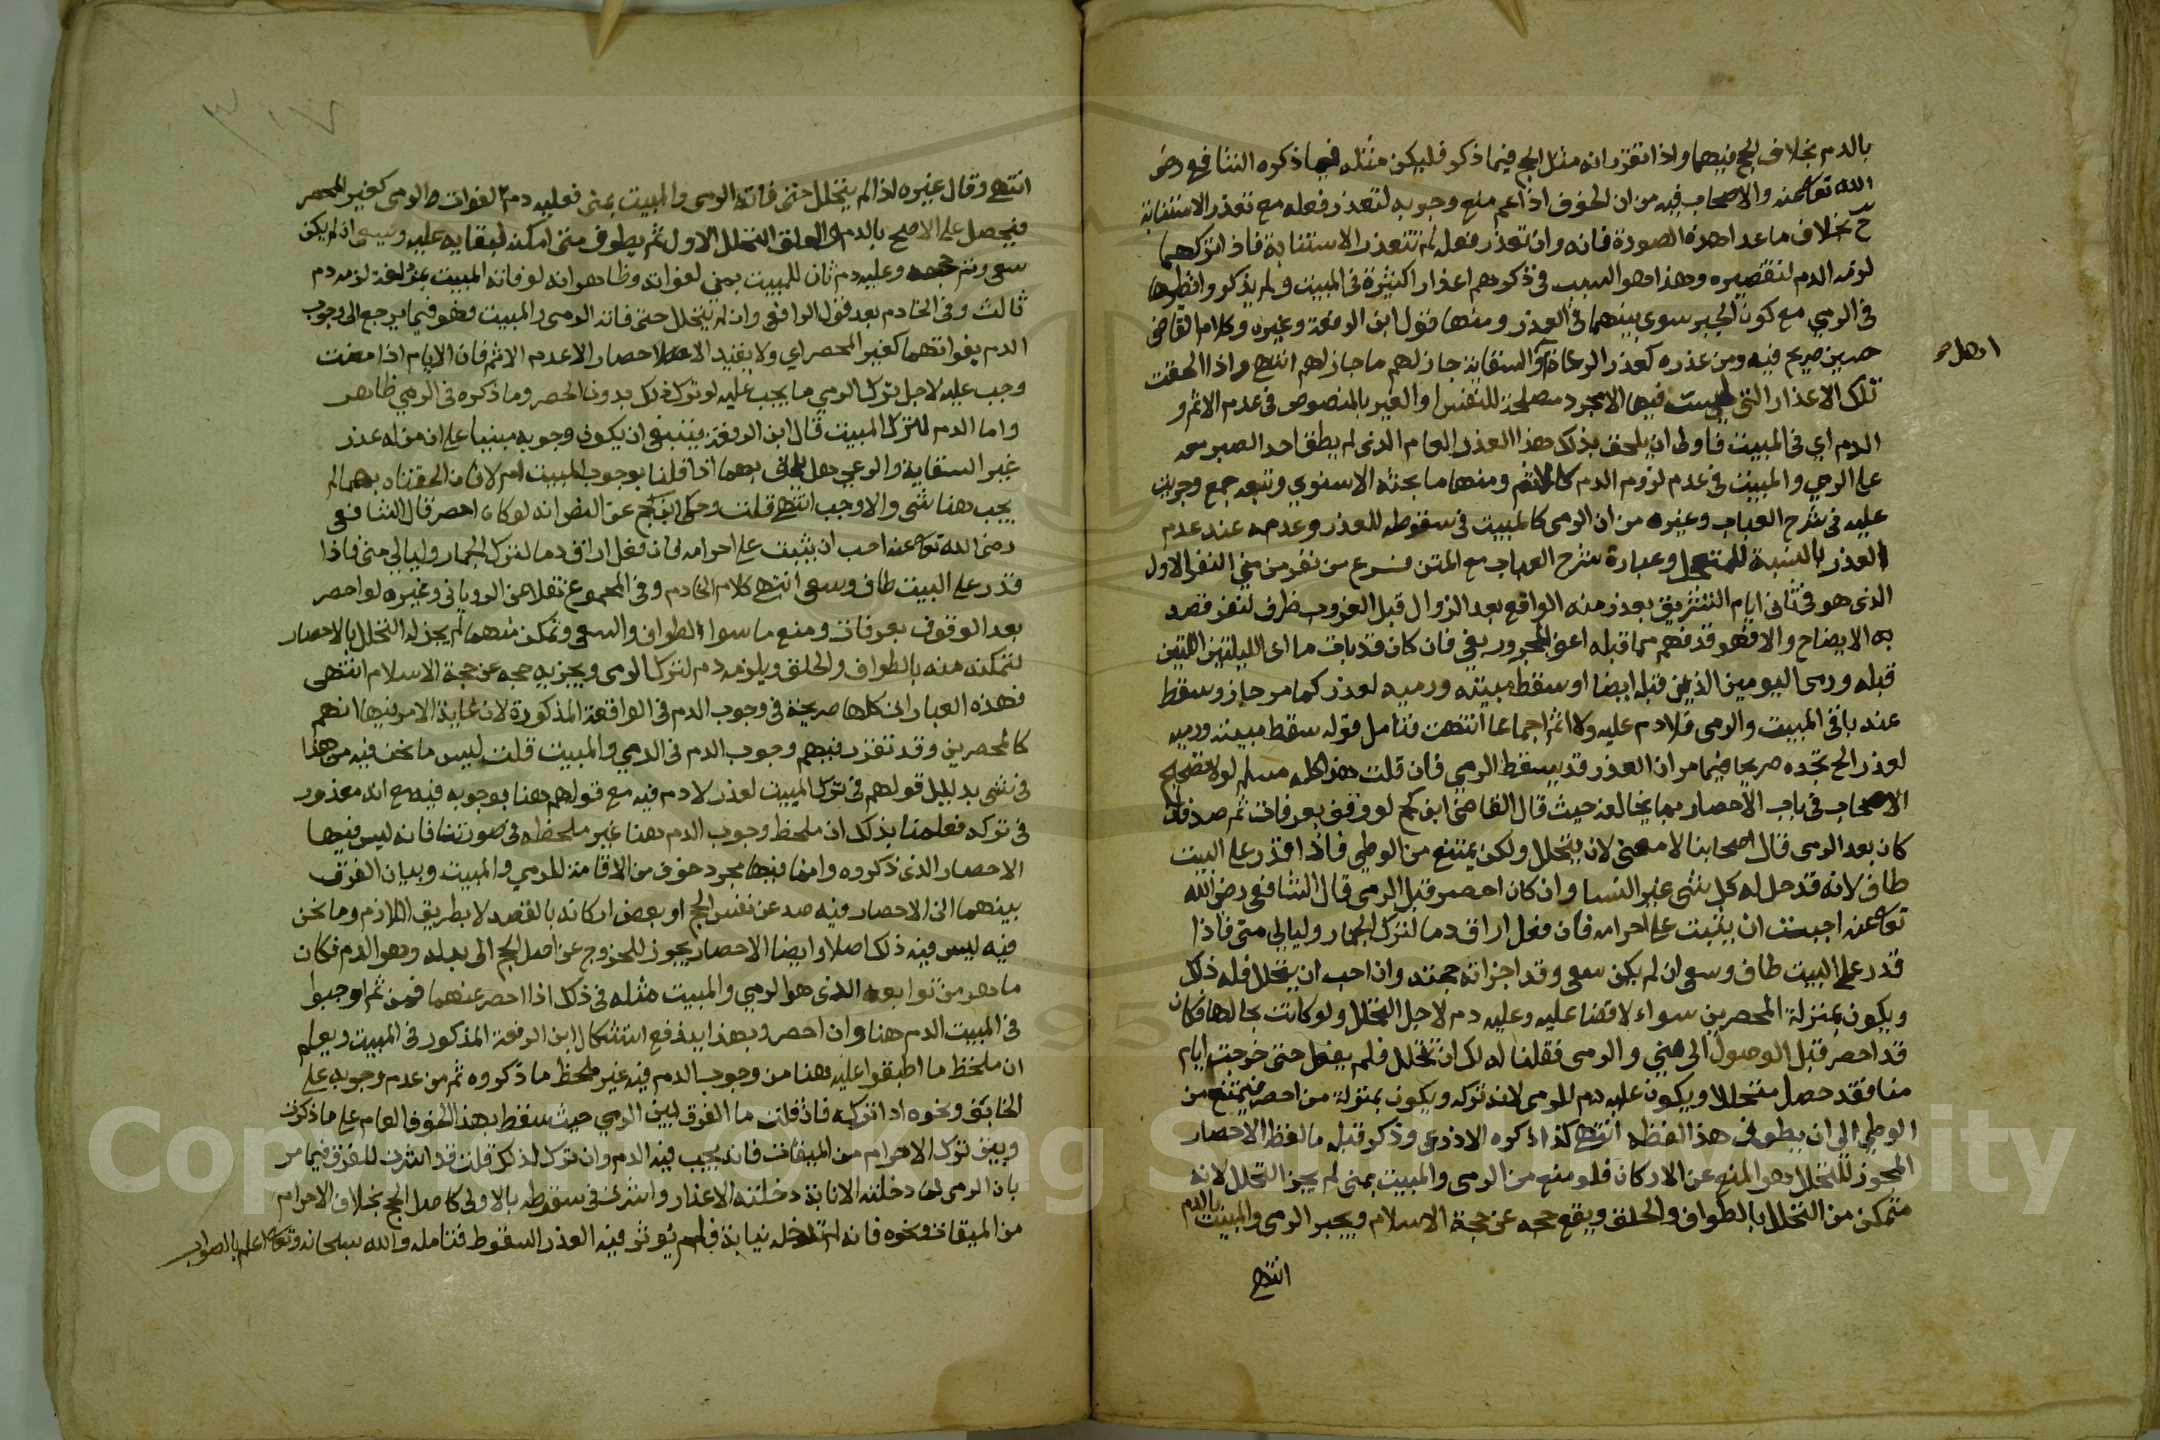 بالدم بخلاف الحج فيهما واذا تقرر انه مثل الحج فيما ذكر فليكن مثله فيما ذكره الشافعي رضى
الله تعالى عنه والاصحاب فيه من ان الخوف اذا عم منع وجوبه لتعذر فعله مع تعذر الاستنابة
ح بخلاف ما عدا هذه الصورة فانه وان تعذر فعله لم تتعذر الاستنابة فاذا تركهما
لزمه الدم لتقصيره وهذا هو السبب في ذكرهم اعذارا كثيرة في المبيت ولم يذكروا نظيرها
في الرمي مع كون الجبر سوى بينهما في العذر ومنها قول ابن الرفعة وغيره وكلام القاضي
حسين صريح فيه ومن عذره كعذر الرعاة والسقاية جاز لهم ما جاز لهم انتهى واذا الحقت
اهل صح
تلك الاعذار التي ليست فيها الا مجرد مصلحة للنفس او الغير بالمنصوص في عدم الاثم و
الدم اي في المبيت فاولى ان يلحق بذلك هذا العذر العام الذي لم يطق احد الصبر معه
على الرمي والمبيت في عدم لزوم الدم كالاثم ومنها ما بحثه الاسنوي وتبعه جمع وجريت
عليه في شرح العباب وغيره من ان الرمى كالمبيت في سقوطه للعذر وعدمه عند عدم
العذر بالنسبة للمتعجل وعبارة شرح العباب مع المتن فرع من نفر من منى النفر الاول
الذي هو في ثاني ايام التشريق بعد رميه الواقع بعد الزوال قبل الغروب ظرف لنفر قصد
به الايضاح والا فهو قد فهم مما قبله اعني المجرور بفي فان كان قد بات ما اى الليلتين اللتين
قبله ورمى اليومين الذين قبله ايضا او سقط مبيته ورميه لعذر كما مر جاز وسقط
عنه باقي المبيت والرمى فلا دم عليه ولا اثم اجماعا انتهت فتامل قوله سقط مبيته ورميه
لعذر الخ تجده صريحا فيما مر ان العذر قد يسقط الرمي فان قلت هذا كله مسلم لولا تصريح
الاصحاب في باب الاحصار بما يخالفه حيث قال القاضي ابن كج لو وقف بعرفات ثم صد فان
كان بعد الرمى قال اصحابنا لا معنى لان يتحلل ولكن يمتنع من الوطي فاذا قدر على البيت
طاف لانه قد حل له كل شئ غير النسا وان كان احصر قبل الرمى قال الشافعى رضى الله
تعالى عنه احببت ان يثبت على احرامه فان فعل اراق دما لترك الجمار وليالي منى فاذا
قدر على البيت طاف وسعى ان لم يكن سعى وقد اجزاته حجته وان احب ان يتحلل فله ذلك
ويكون بمنزلة المحصرين سواء لا قضا عليه وعليه دم لاجل التحلل ولو كانت بحالها فكان
قد احصر قبل الوصول الى منى والرمى فقلنا له لك ان تتحلل فلم يفعل حتى خرجت ايام
منا فقد حصل متحللا ويكون عليه دم للرمى لانه تركه ويكون بمنزلة من احصر فيمتنع من
الوطي الى ان يطوف هذا لفظه انتهى كذا ذكره الاذرعى وذكر قبله ما لفظه الاحصار
المجوز للتحلل هو المنع عن الاركان فلو منع من الرمى والمبيت بمنى لم يجز التحلل لانه
متمكن من التحلل بالطواف والحلق ويقع حجه عن حجة الاسلام ويجبر الرمى والمبيت بالدم
انتهى
٣٠٧
انتهى وقال غيره اذا لم يتحلل حتى فاته الرمى والمبيت بمنى فعليه دم لفوات الرمى كغير المحصر
فيحصل على الاصح بالدم والحلق التحلل الاول ثم يطوف متى امكنه لبقايه عليه ويسعى ان لم يكن
سعى وتم حجه وعليه دم ثان للمبيت بمنى لفواته وظاهر انه لو فاته المبيت بمزدلفة لزمه دم
ثالث وفى الخادم بعد قول الرافعى وان لم يتحلل حتى فاته الرمى والمبيت فهو فيما يرجع الى وجوب
الدم بفواتهما كغير المحصر اي ولا يفيد الاحصار الا عدم الاثم فان الايام اذا مضت
وجب عليه لاجل ترك الرمي ما يجب عليه لو ترك ذلك بدون الحصر وما ذكره في الرمي ظاهر
واما الدم لترك المبيت قال ابن الرفعة ينبغي ان يكون وجوبه مبنيا على ان من له عذر
غير السقاية والرعي هل يلحق بهما اذا قلنا بوجوب المبيت ام لا فان الحقناه بهما لم
يجب هنا شي والا وجب انتهى قلت وحكى ابن كج عن النص انه لو كان احصر قال الشافعى
رضى الله تعالى عنه احب ان يثبت على احرامه فان فعل اراق دما لترك الجمار وليالي منى فاذا
قدر على البيت طاف وسعى انتهى كلام الخادم وفى المجموع نقلا عن الروياني وغيره لو احصر
بعد الوقوف بعرفات ومنع ما سوا الطواف والسعى وتمكن منهما لم يجز له التحلل بالاحصار
لتمكنه منه بالطواف والحلق ويلزمه دم لترك الرمى ويجزيه حجه عن حجة الاسلام انتهى
فهذه العبارات كلها صريحة في وجوب الدم في الواقعة المذكورة لان غاية الامر فيها انهم
كالمحصرين وقد تقرر فيهم وجوب الدم في الرمي والمبيت قلت ليس ما نحن فيه من هذا
في شي بدليل قولهم في ترك المبيت لعذر لا دم فيه مع قولهم هنا بوجوبه فيه مع انه معذور
في تركه فعلمنا بذلك ان ملحظ وجوب الدم هنا غير ملحظه في صورتنا فانه ليس فيها
الاحصار الذى ذكروه وانما فيها مجرد خوف من الاقامة للرمي والمبيت وبيان الفرق
بينهما ان الاحصار فيه صد عن نفس الحج او بعض اركانه بالقصد لا بطريق اللازم وما نحن
فيه ليس فيه ذلك اصلا وايضا الاحصار يجوز للخروج عن اصل الحج الى بدله وهو الدم فكان
ما هو من توابعه الذى هو الرمي والمبيت مثله في ذلك اذا احصر عنهما فمن ثم اوجبوا
في المبيت الدم هنا وان احصر وبهذا يندفع استشكال ابن الرفعة المذكور في المبيت ويعلم
ان ملحظ ما اطبقوا عليه هنا من وجوب الدم فيه غير ملحظ ما ذكروه ثم من عدم وجوبه على
الخائف ونحوه اذا تركه فان قلت ما الفرق بين الرمي حيث سقط بهذا الخوف العام على ما ذكرت
وبين ترك الاحرام من الميقات فانه يجب فيه الدم وان ترك لذلك قلت قد اشرت للفرق فيما مر
بان الرمى لما دخلته الانابة دخلته الاعذار واثرت في سقوطه بالاولى كاصل الحج بخلاف الاحرام
من الميقات ونحوه فانه لم تدخله نيابة فلم يؤثر فيه العذر السقوط فتامله والله سبحانه وتعالى اعلم بالصواب
Copyright © King Saud University